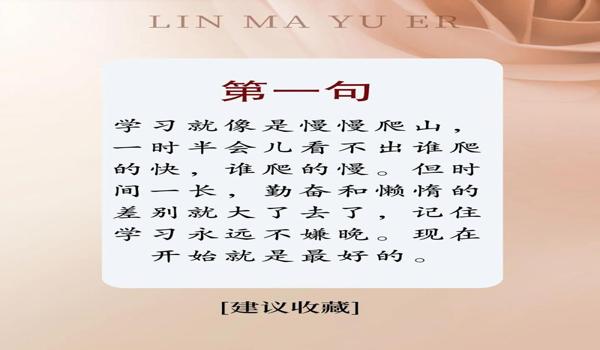 LIN MA YU ER
第一句
学习就像是慢慢爬山，
一时半会儿看不出谁爬
的快，谁爬的慢。但时
间一长，勤奋和懒惰的
差别就大了去了，记住
学习永远不嫌晚。现在
开始就是最好的。
[建议收藏]